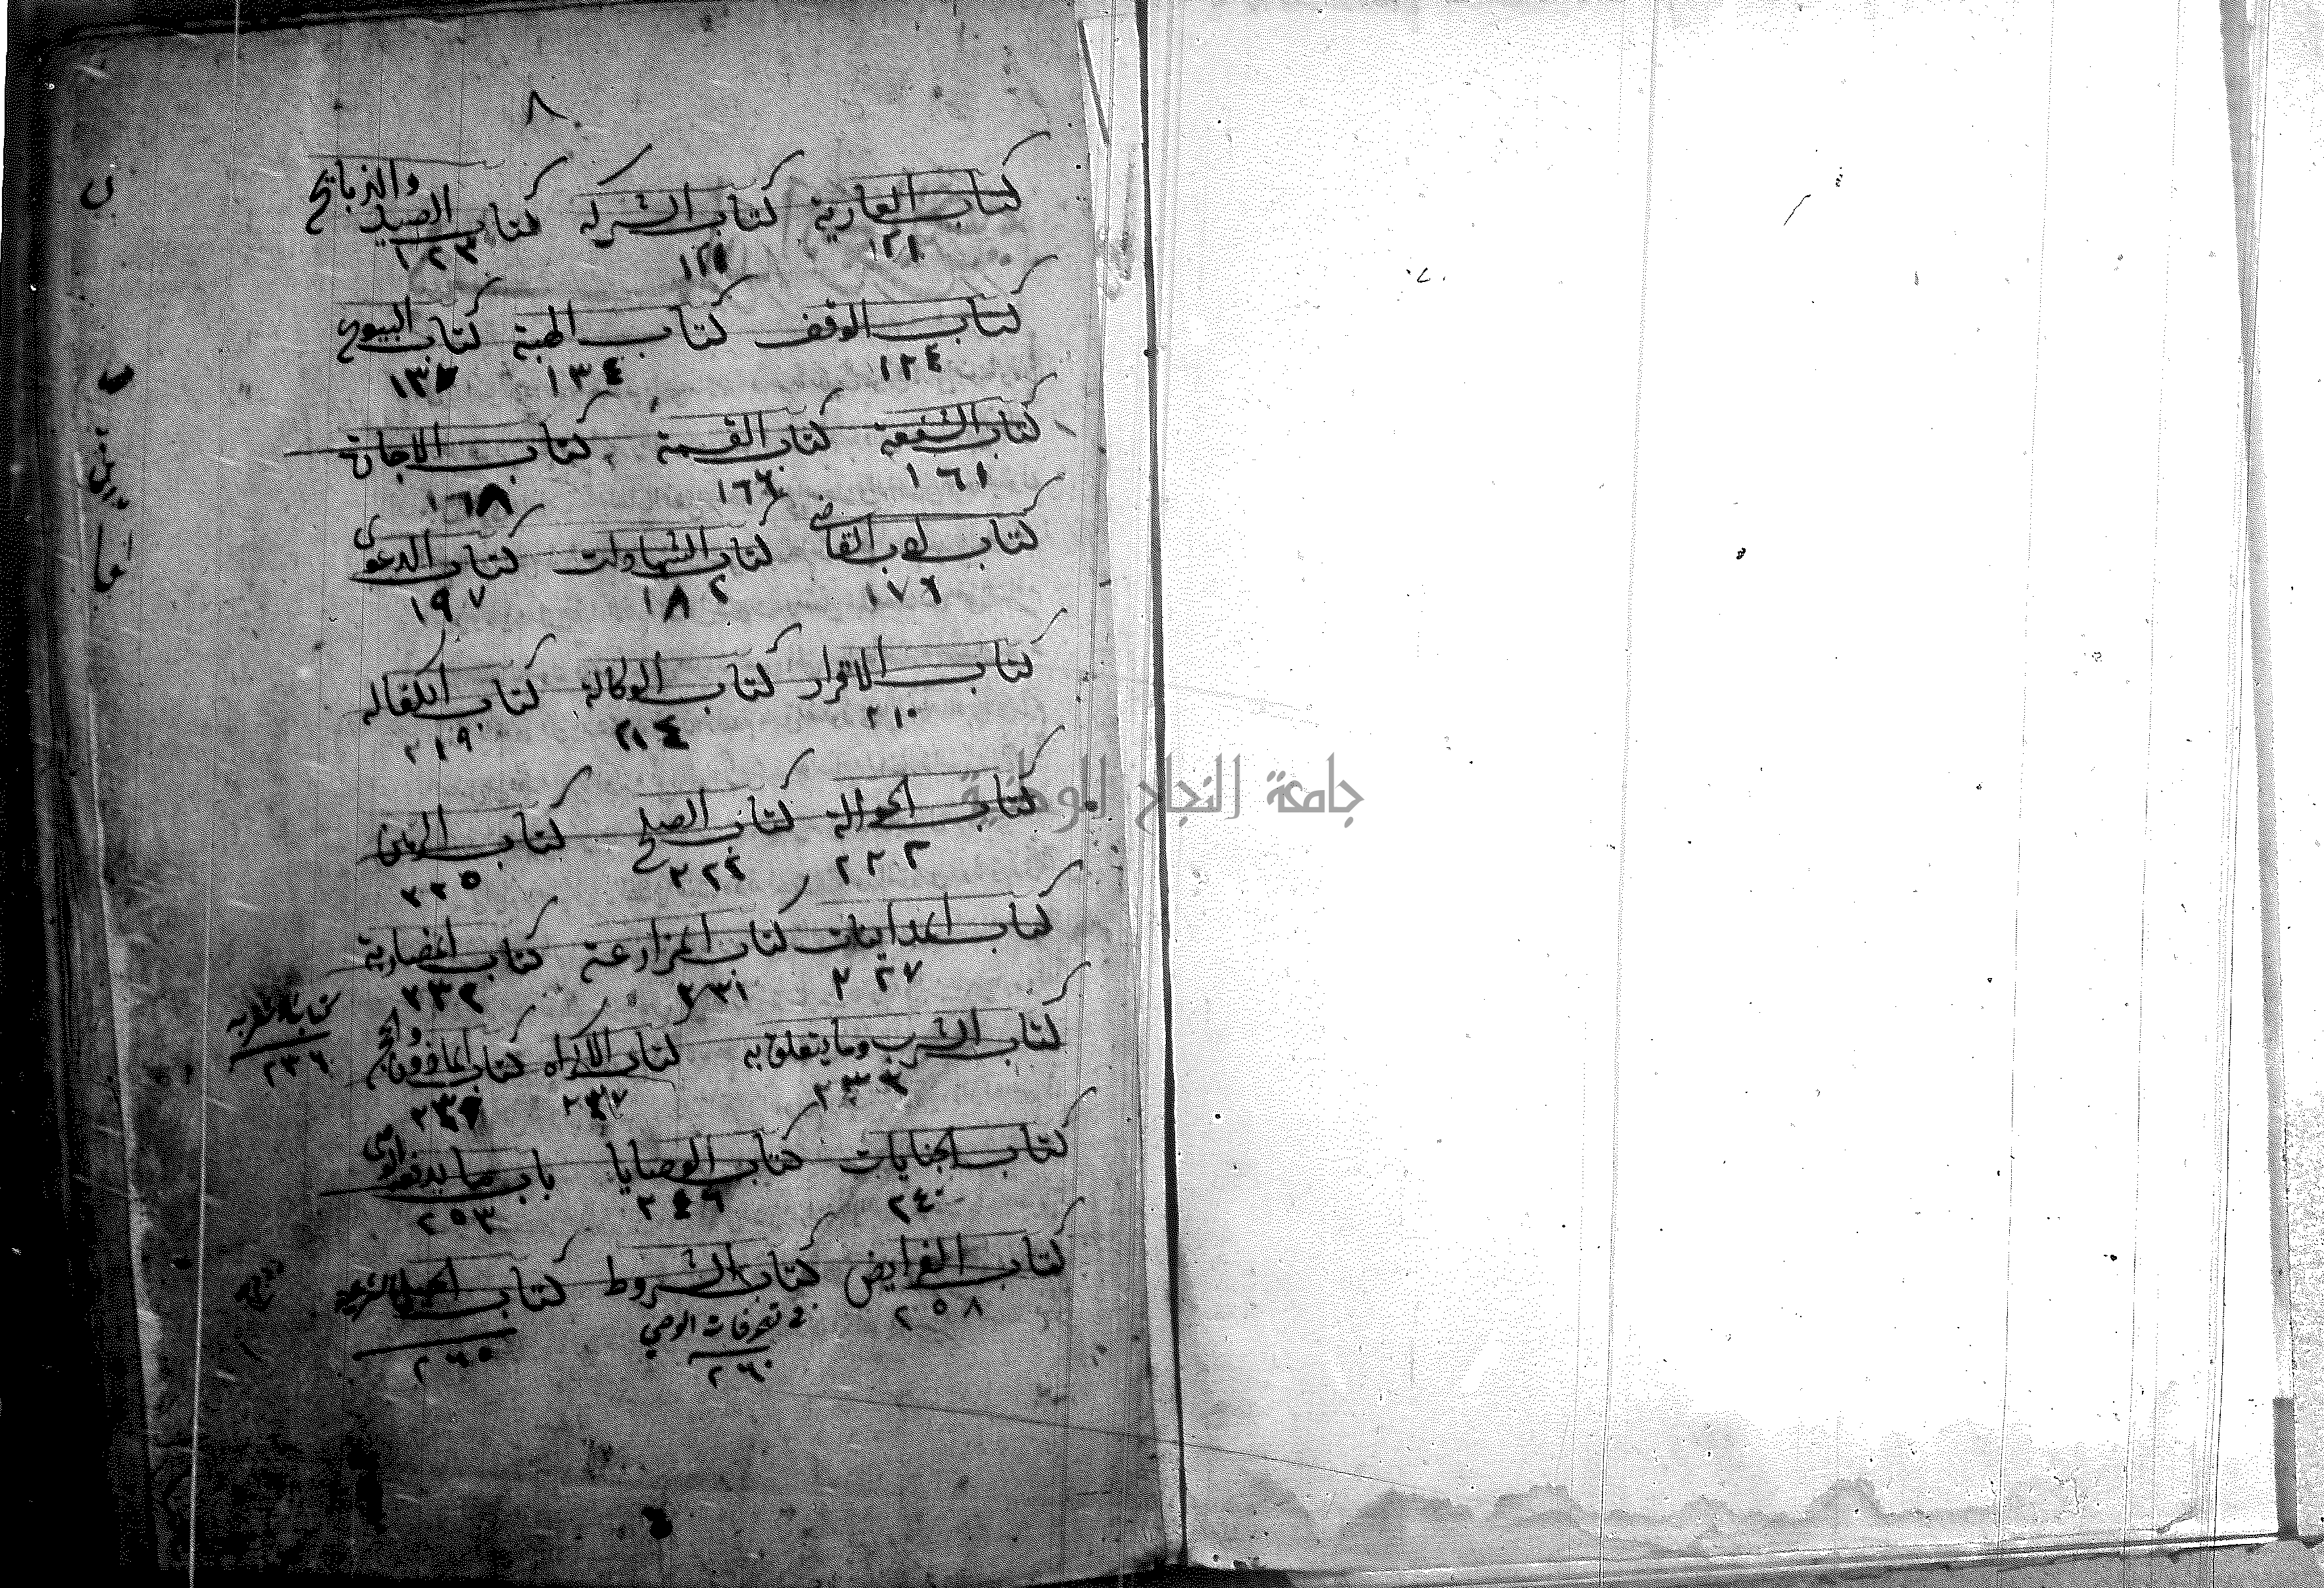 ٨
كتاب العارية كتاب الشركه كتاب الصيد والذبايح
١٢١ ١٢١ ١٢٣
كتاب الوقف كتاب الهبة كتاب البيوع
١٢٤ ١٣٤
كتاب الشفعة كتاب القسمة كتاب الاجارة
١٦١ ١٦٦ ١٦٨
كتاب ادب القاضي كتاب الشهادات كتاب الدعوى
١٧٦ ١٨٢ ١٩٧
كتاب الاقرار كتاب الوكالة كتاب الكفاله
٢١٠ ٢١٤ ٢١٩
كتاب الحوالة كتاب الصلح كتاب الرهن
٢٢٣ ٢٢٤ ٢٢٥
كتاب المداينات كتاب المزارعة كتاب المضاربة
٢٢٧ ٢٣١ ٢٣٢
كتاب الشرب وما يتعلق به كتاب الاكراه كتاب الماذون والحجر
كتاب الاشربه
٢٣٣ ٢٣٧ ٢٣٩ ٢٣٦
كتاب الجنايات كتاب الوصايا باب
٢٤٠ ٢٤٦ ٢٥٣
كتاب الفرايض كتاب الشروط كتاب الحيل الشرعية
٢٥٨ في تصرفات الوصي ٢٦٥
٢٦٠
جامعة النجاح الوطنية